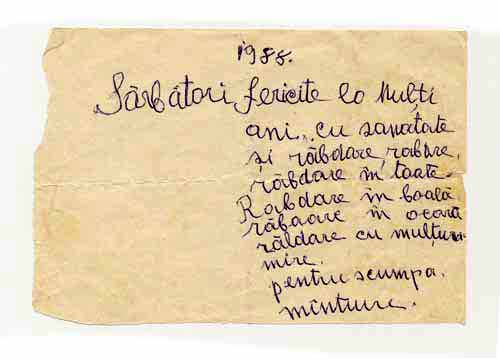 1988.
Sărbători fericite lo Mulți
ani, cu sanatate
și răbdare, rabdre,
răbdare în toate.
Rabdare în boală
răbdare în ocară
răbdare cu mulțu
mire.
pentru scumpa.
mîntuire.